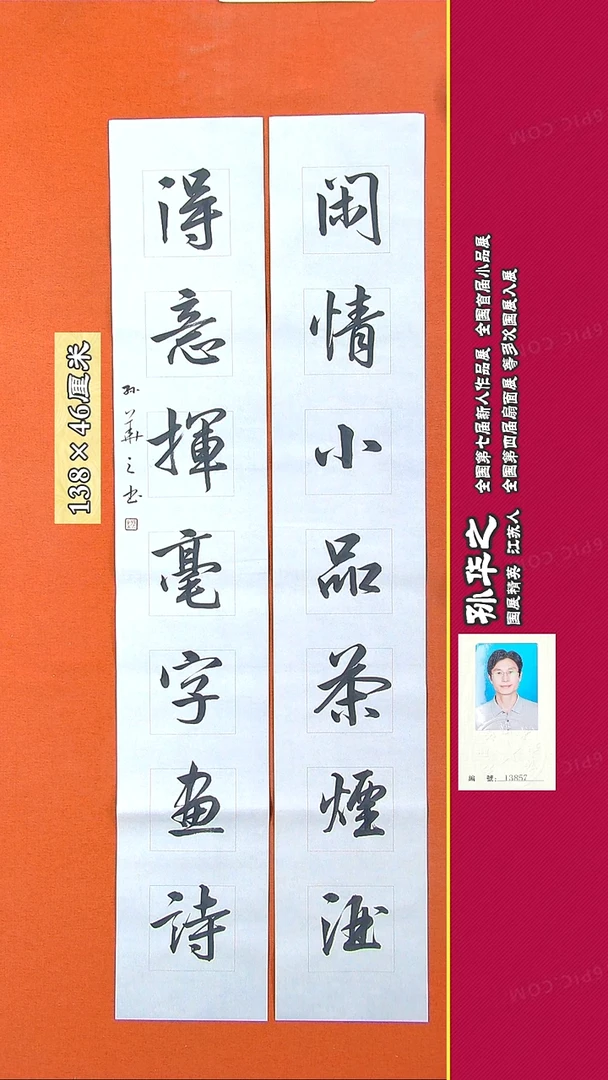 闲情小品茶煙酒
得意揮毫字画詩
孙華之书
138×46厘米
孙华之
国展精英 江苏人
全国第七届新人作品展 全国首届小品展
全国第四届扇面展 等多次国展入展
编 號: 13857
6PIC.COM